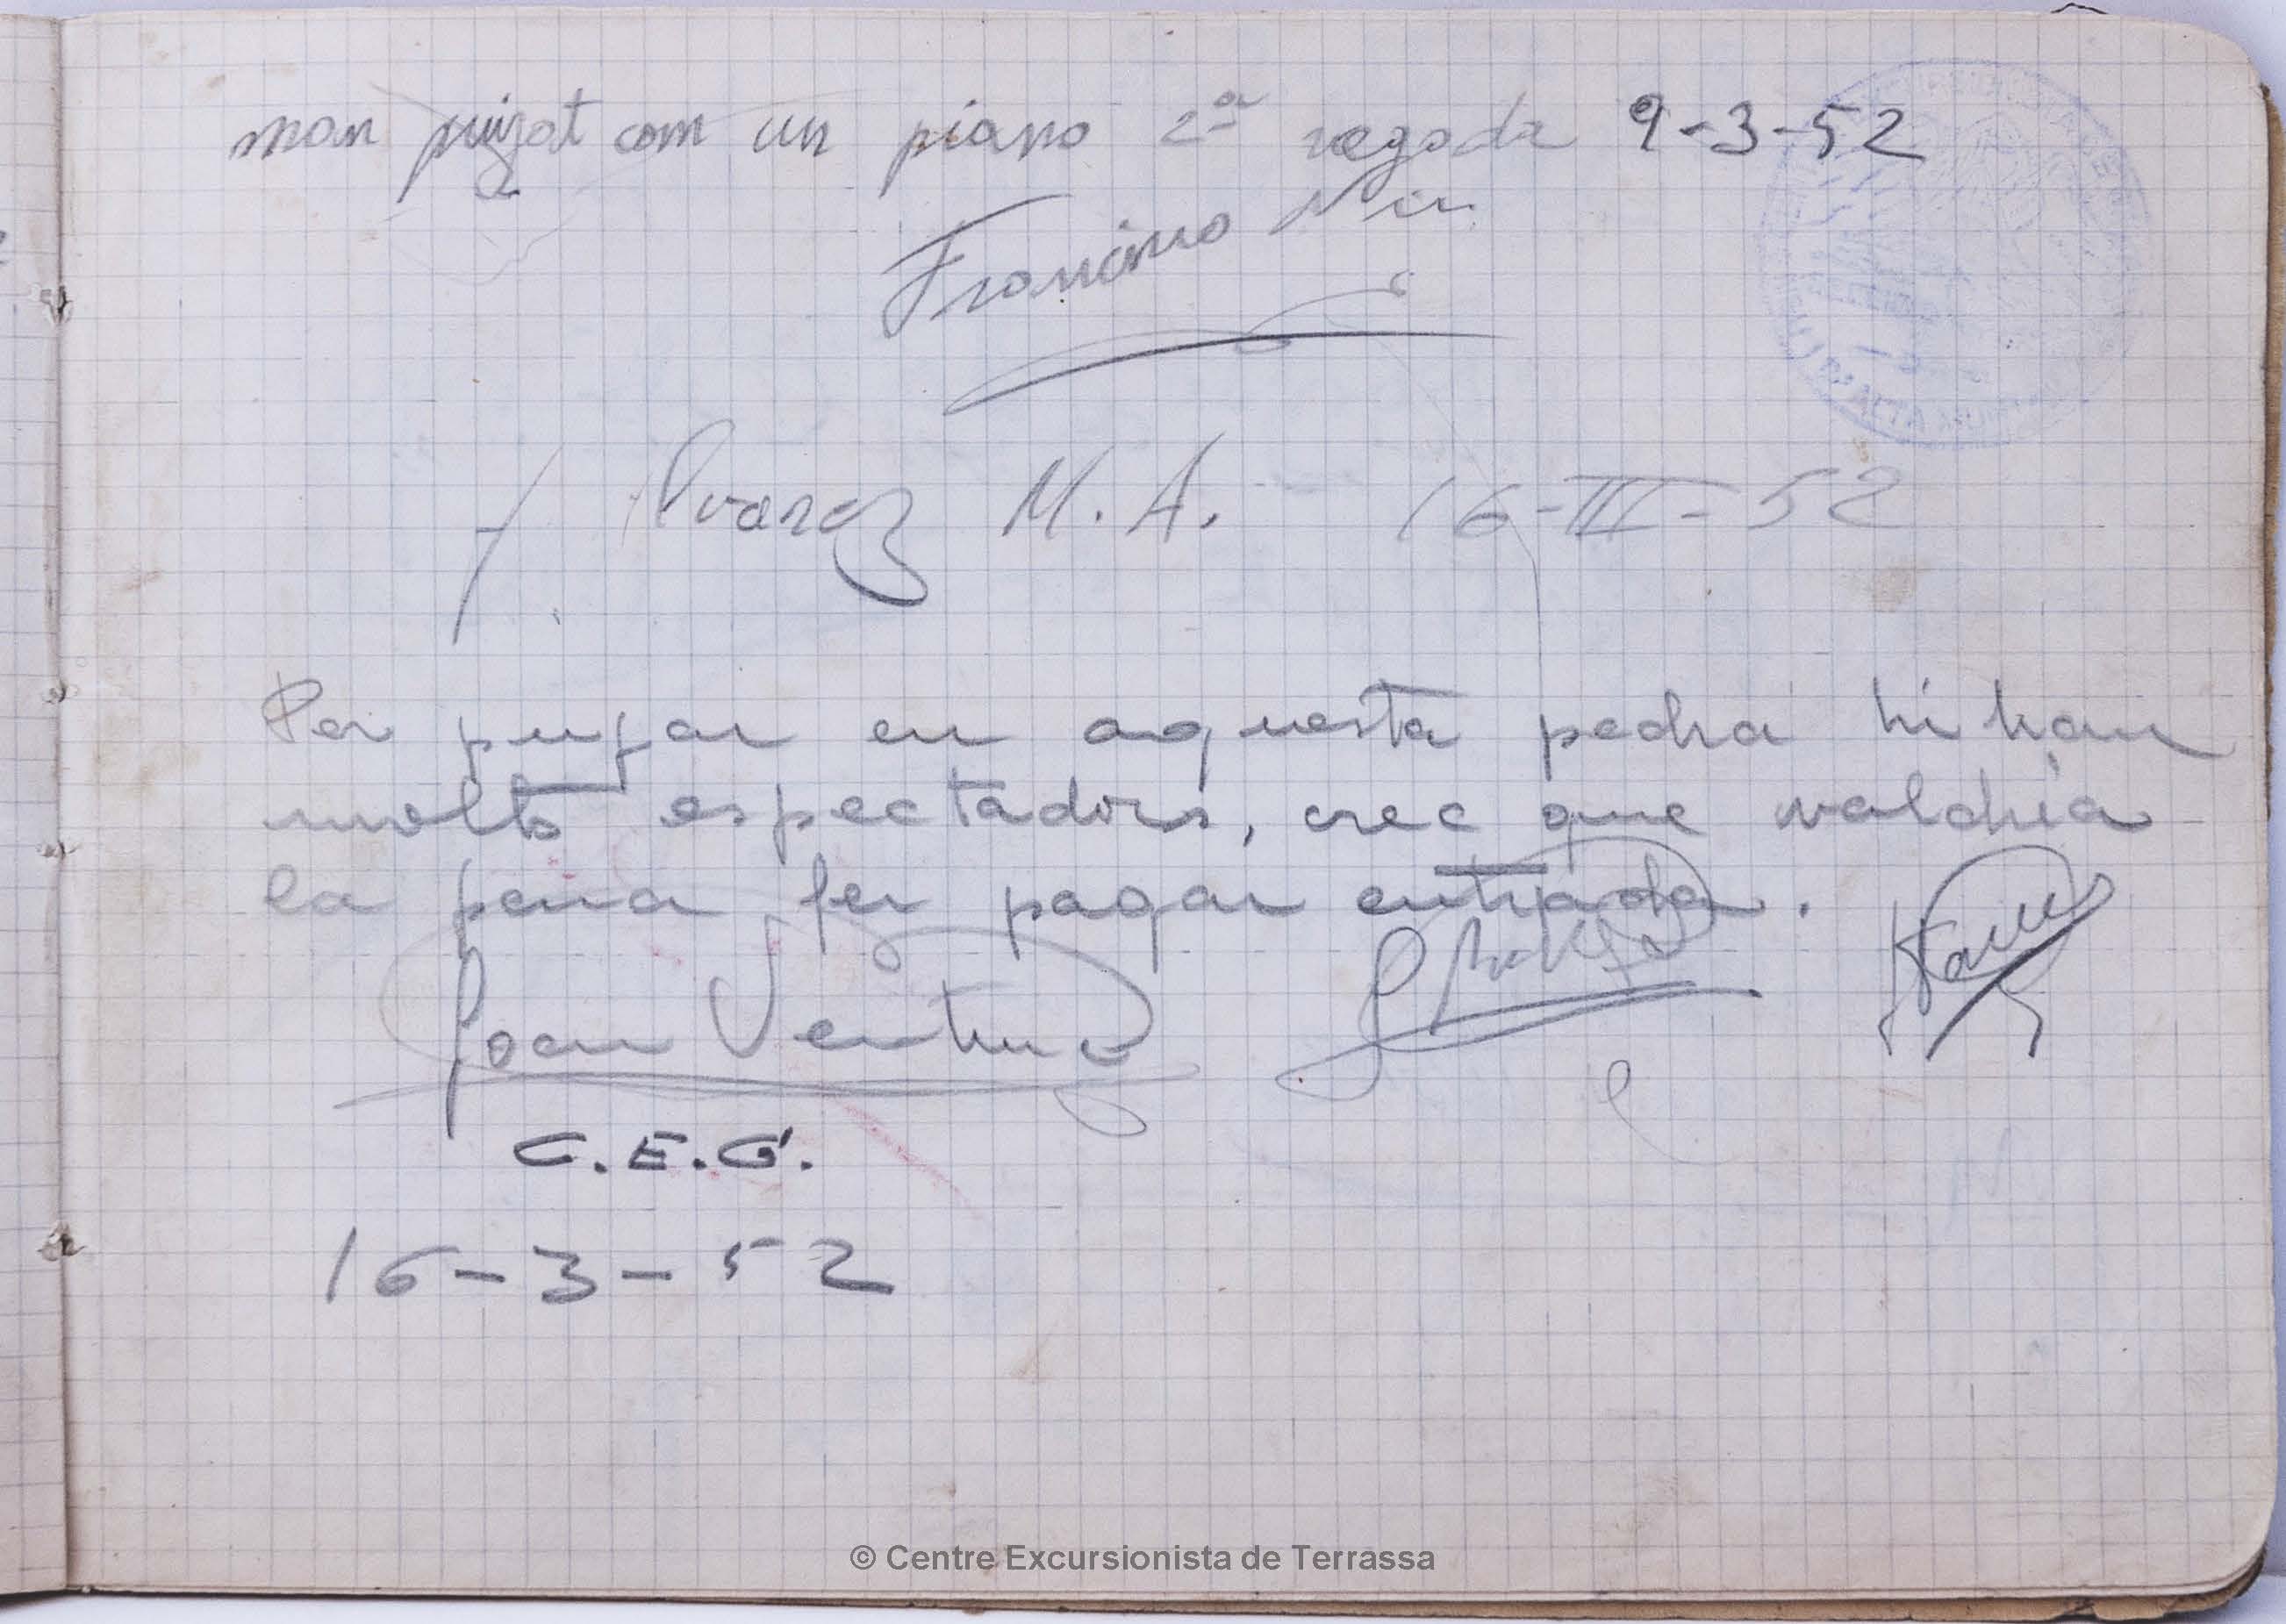 man puigat com un piano 2ª vegada 9-3-52
Francisco Nin
Alvarez M. A. 16-III-52
Per pujar en aquesta pedra hi han
molts espectadors, crec que valdria
la pena fer pagar entrada.
Joan Ventura
C.E.G.
16-3-52
D'ALTA MUNTANYA
© Centre Excursionista de Terrassa